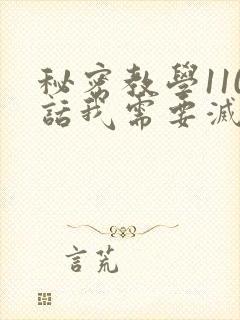 秘密教學110
話我需要滅
言荒